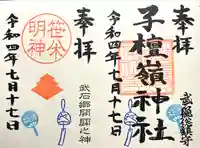 奉拝
子檀嶺神社
令和四年七月十七日
武石総鎮守
奉拝
笹焼明神
武石郷開闢之神
令和四年七月十七日